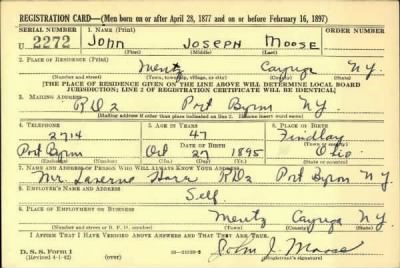 REGISTRATION CARD—(Men born on or after April 28, 1877 and on or before February 16, 1897)
SERIAL NUMBER 1. NAME (Print) ORDER NUMBER
U 2272 John Joseph Moose
(First) (Middle) (Last)
2. PLACE OF RESIDENCE (Print)
Mentz Cayuga N.Y.
(Number and street) (Town, township, village, or city) (County) (State)
[THE PLACE OF RESIDENCE GIVEN ON THE LINE ABOVE WILL DETERMINE LOCAL BOARD
JURISDICTION; LINE 2 OF REGISTRATION CERTIFICATE WILL BE IDENTICAL]
3. MAILING ADDRESS
RD2 Port Byron N.Y.
[Mailing address if other than place indicated on line 2. If same insert word same]
4. TELEPHONE 5. AGE IN YEARS 6. PLACE OF BIRTH
2714 47 Findlay
DATE OF BIRTH (Town or county)
Port Byron Oct 27 1895 Ohio
(Exchange) (Number) (Mo.) (Day) (Yr.) (State or country)
7. NAME AND ADDRESS OF PERSON WHO WILL ALWAYS KNOW YOUR ADDRESS
Mr. Laverne RD2 Port Byron N.Y.
8. EMPLOYER'S NAME AND ADDRESS
Self
9. PLACE OF EMPLOYMENT OR BUSINESS
Mentz Cayuga N.Y.
(Number and street or R. F. D. number) (Town) (County) (State)
I AFFIRM THAT I HAVE VERIFIED ABOVE ANSWERS AND THAT THEY ARE TRUE.
D. S. S. Form 1
(Revised 4-1-42) (over) John J. Moose
(Registrant's signature)